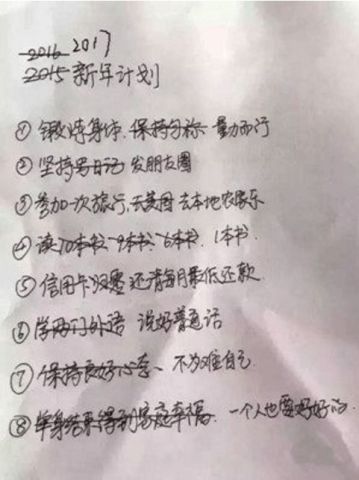 2016 2017
2015 新年计划
① 锻炼身体、保持匀称、量力而行
② 坚持写日记 发朋友圈
③ 参加一次旅行,去美国 去本地农家乐
④ 读10本书 9本书 6本书 1本书
⑤ 信用卡归零 还清每月最低还款
⑥ 学两门外语 说好普通话
⑦ 保持良好心态、不为难自己
⑧ 单身结束得到家庭幸福 一个人也要好好的